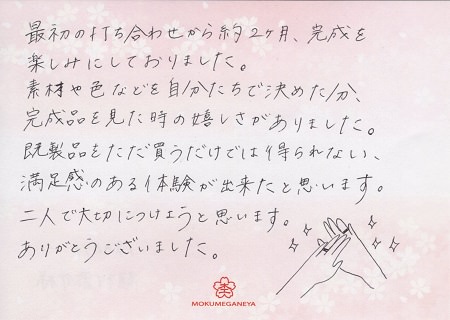 最初の打ち合わせから約2ヶ月、完成を
楽しみにしておりました。
素材や色などを自分たちで決めた分、
完成品を見た時の嬉しさがありました。
既製品をただ買うだけでは得られない、
満足感のある体験が出来たと思います。
二人で大切につけようと思います。
ありがとうございました。
MOKUMEGANEYA